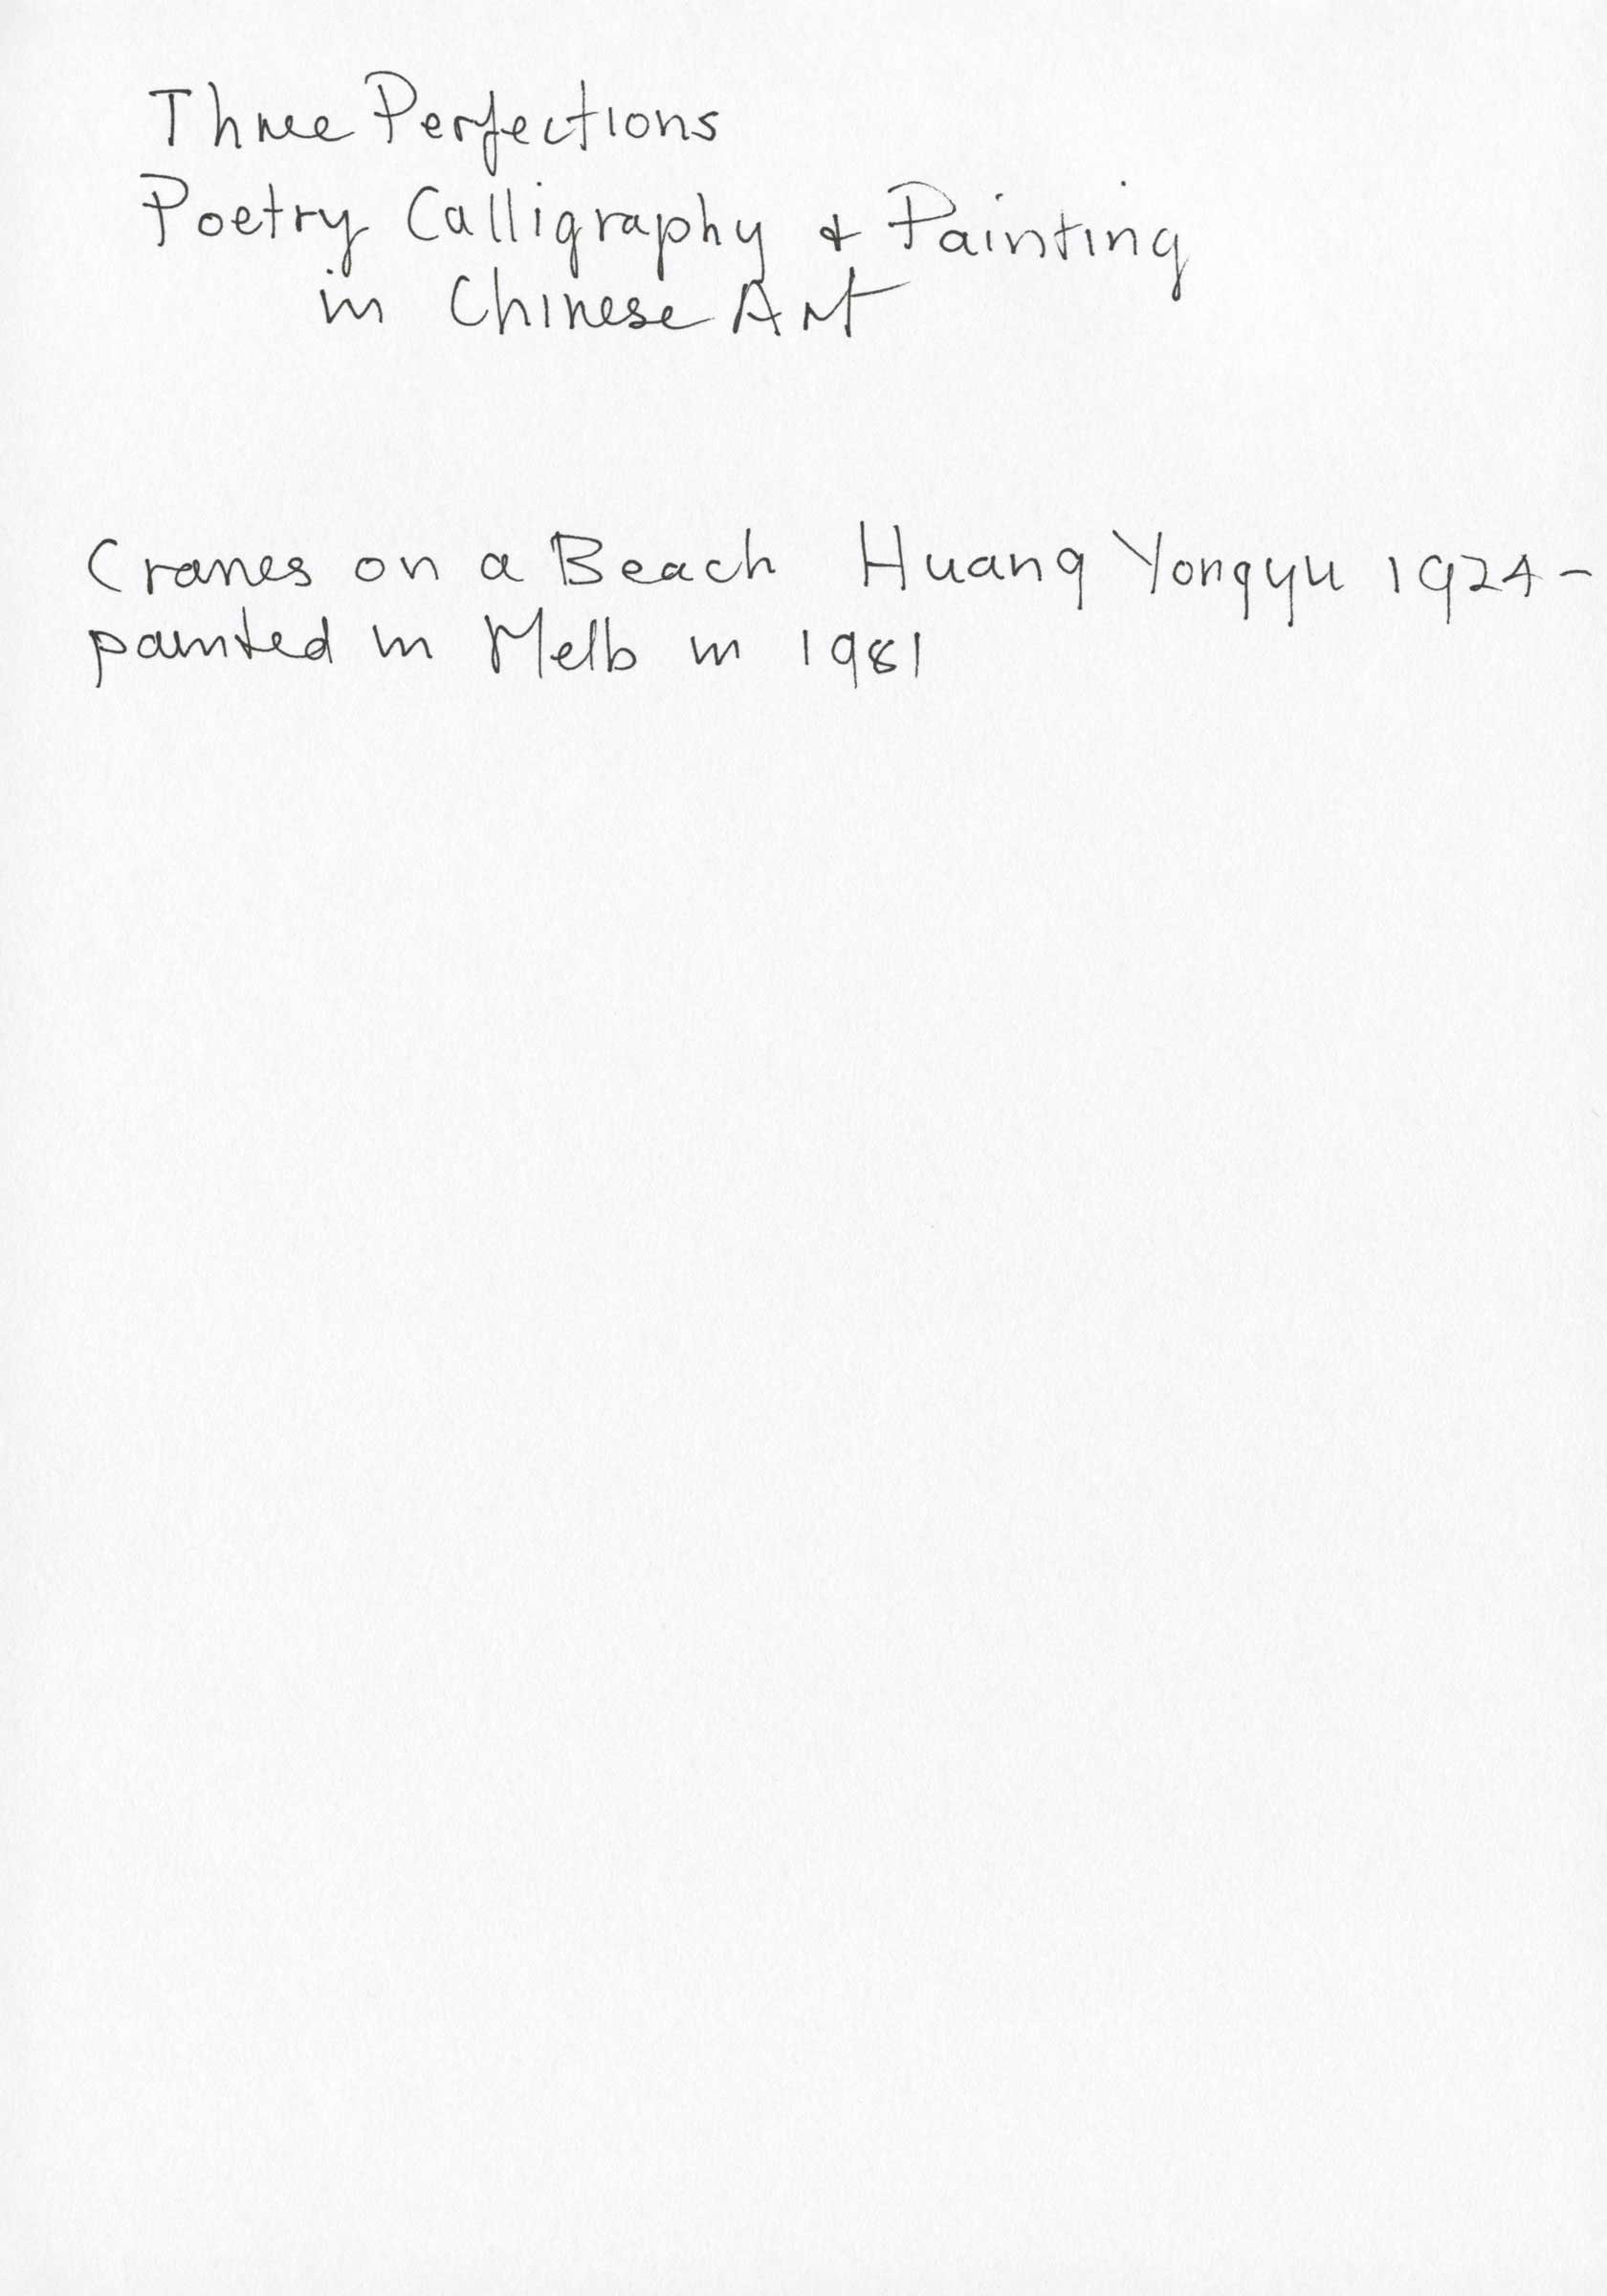 Three Perfections
Poetry Calligraphy & Painting
in Chinese Art
Cranes on a Beach Huang Yongyu 1924-
painted in Melb in 1981